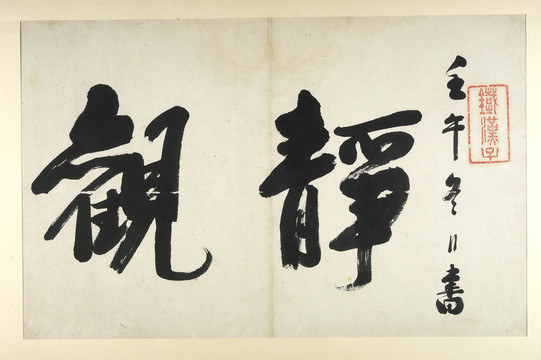 壬午冬日書
靜觀